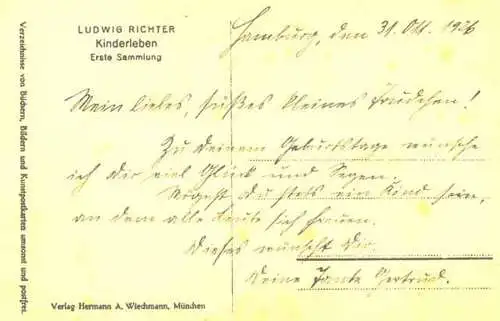 LUDWIG RICHTER
Kinderleben
Erste Sammlung
Hamburg, den 31. Okt. 1926
Mein liebes, süßes kleines Trudchen!
Zu Deinem Geburtstage wünsche
ich Dir viel Glück und Segen.
Mögest Du stets ein Kind sein,
an dem alle Leute sich freuen.
Dieses wünscht Dir
Deine Tante Gertrud.
Verlag Hermann A. Wiechmann, München
Verzeichnisse von Büchern, Bildern und Kunstpostkarten umsonst und postfrei.